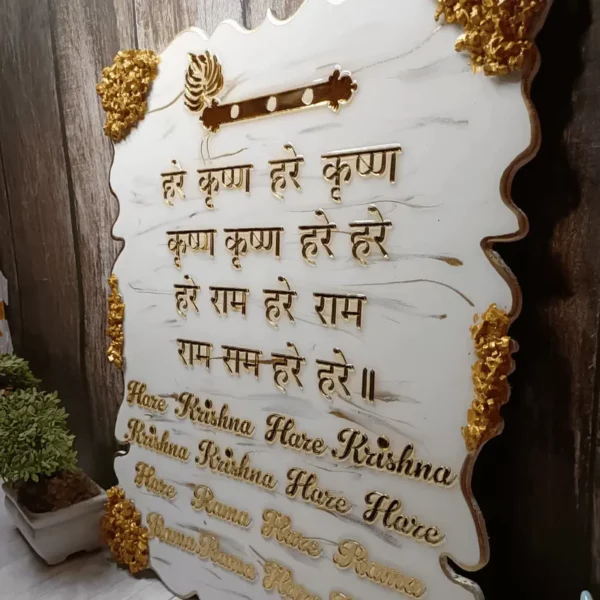 हरे कृष्ण हरे कृष्ण
कृष्ण कृष्ण हरे हरे
हरे राम हरे राम
राम राम हरे हरे॥
Hare Krishna Hare Krishna
Krishna Krishna Hare Hare
Hare Rama Hare Rama
Rama Rama Hare